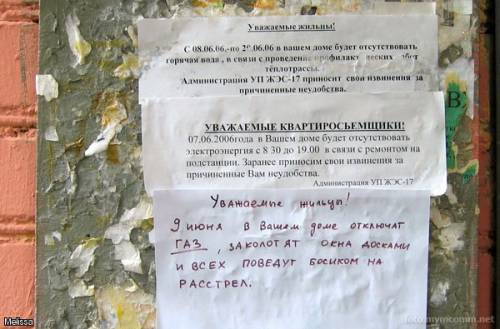 Уважаемые жильцы!
С 08.06.06.-по 28.06.06 в вашем доме будет отсутствовать
горячая вода , в связи с проведением профилактических работ
теплотрассы.
Администрация УП ЖЭС-17 приносит свои извинения за
причиненные неудобства.
УВАЖАЕМЫЕ КВАРТИРОСЬЕМЩИКИ!
07.06.2006года в Вашем доме будет отсутствовать
электроэнергия с 8 30 до 19.00 в связи с ремонтом на
подстанции. Заранее приносим свои извинения за
причиненные Вам неудобства.
Администрация УП ЖЭС-17
В
Уважаемые жильцы!
9 июня в Вашем доме отключат
ГАЗ, заколотят окна досками
и всех поведут босиком на
расстрел.
Melissa